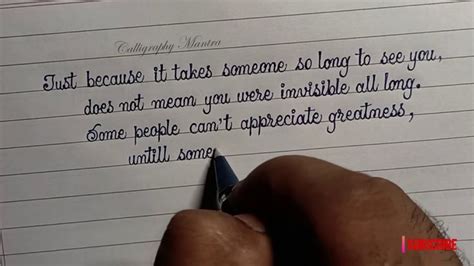 Calligraphy Mantra
Just because it takes someone so long to see you,
does not mean you were invisible all long.
Some people can't appreciate greatness,
untill some
SUBSCRIBE